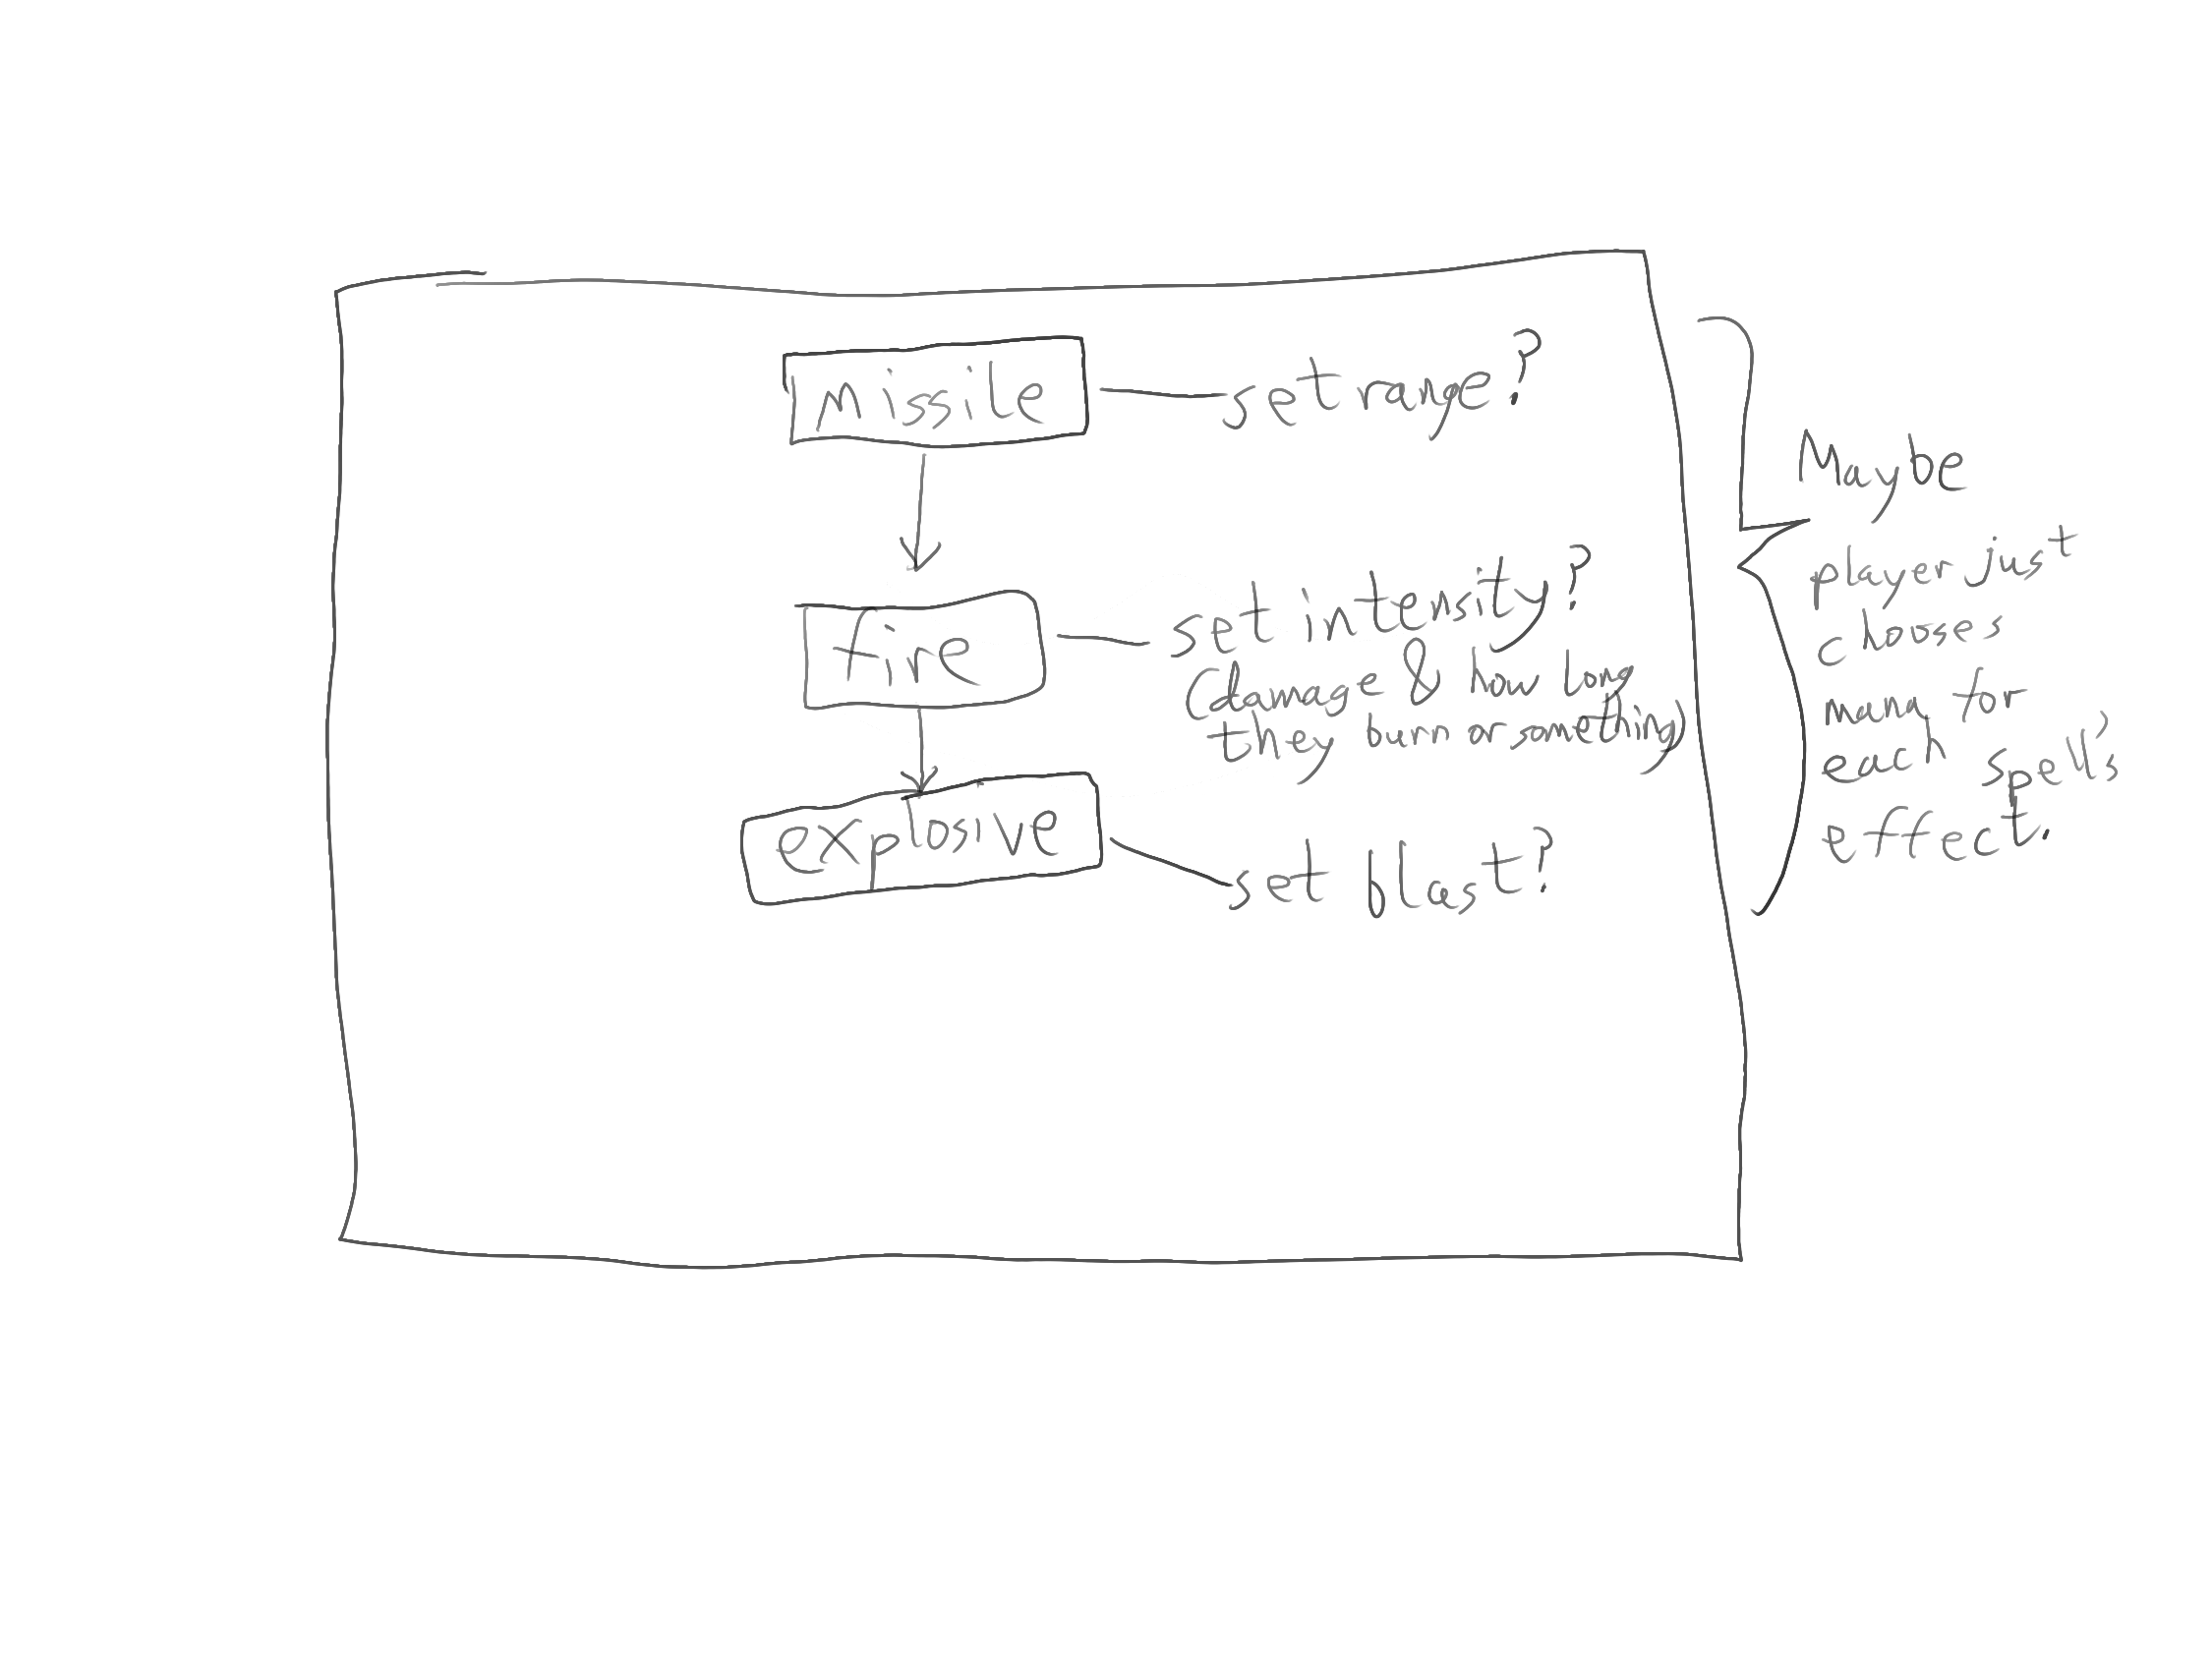 Missile
set range?
fire
set intensity?
(damage & how long
they burn or something)
explosive
set blast?
Maybe
player just
chooses
mana for
each spell's
effect.